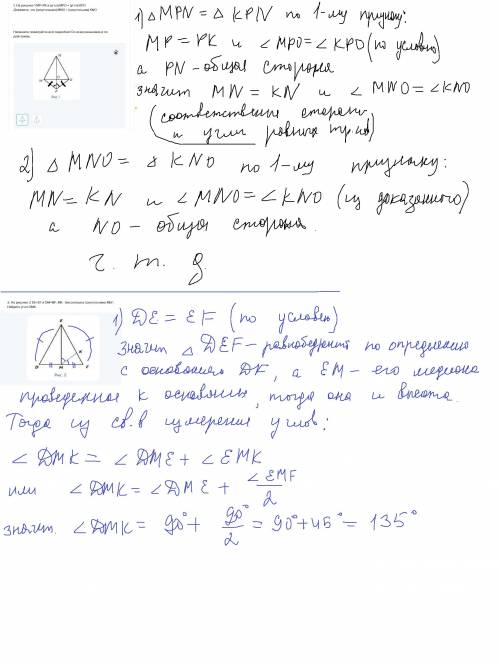 1) △MPN = △KPN по 1-му признаку:
MP = PK и ∠MPO = ∠KPO (по условию)
а PN - общая сторона
значит MN = KN и ∠MNO = ∠KNO
(соответствение сторон
и углы равных тр-ов)
2) △MNO = △KNO по 1-му признаку:
MN = KN и ∠MNO = ∠KNO (из доказанного)
а NO - общая сторона.
ч. т. д.
Найдите угол DMK.
Рис. 2
1) DE = EF (по условию)
значит △DEF - равнобедренный по определению
с основанием DF, а EM - его медиана
проведенная к основанию, тогда она и высота.
Тогда из св-в измерения углов:
∠DMK = ∠DME + ∠EMK
или ∠DMK = ∠DME + ∠EMF/2
значит ∠DMK = 90° + 90°/2 = 90° + 45° = 135°